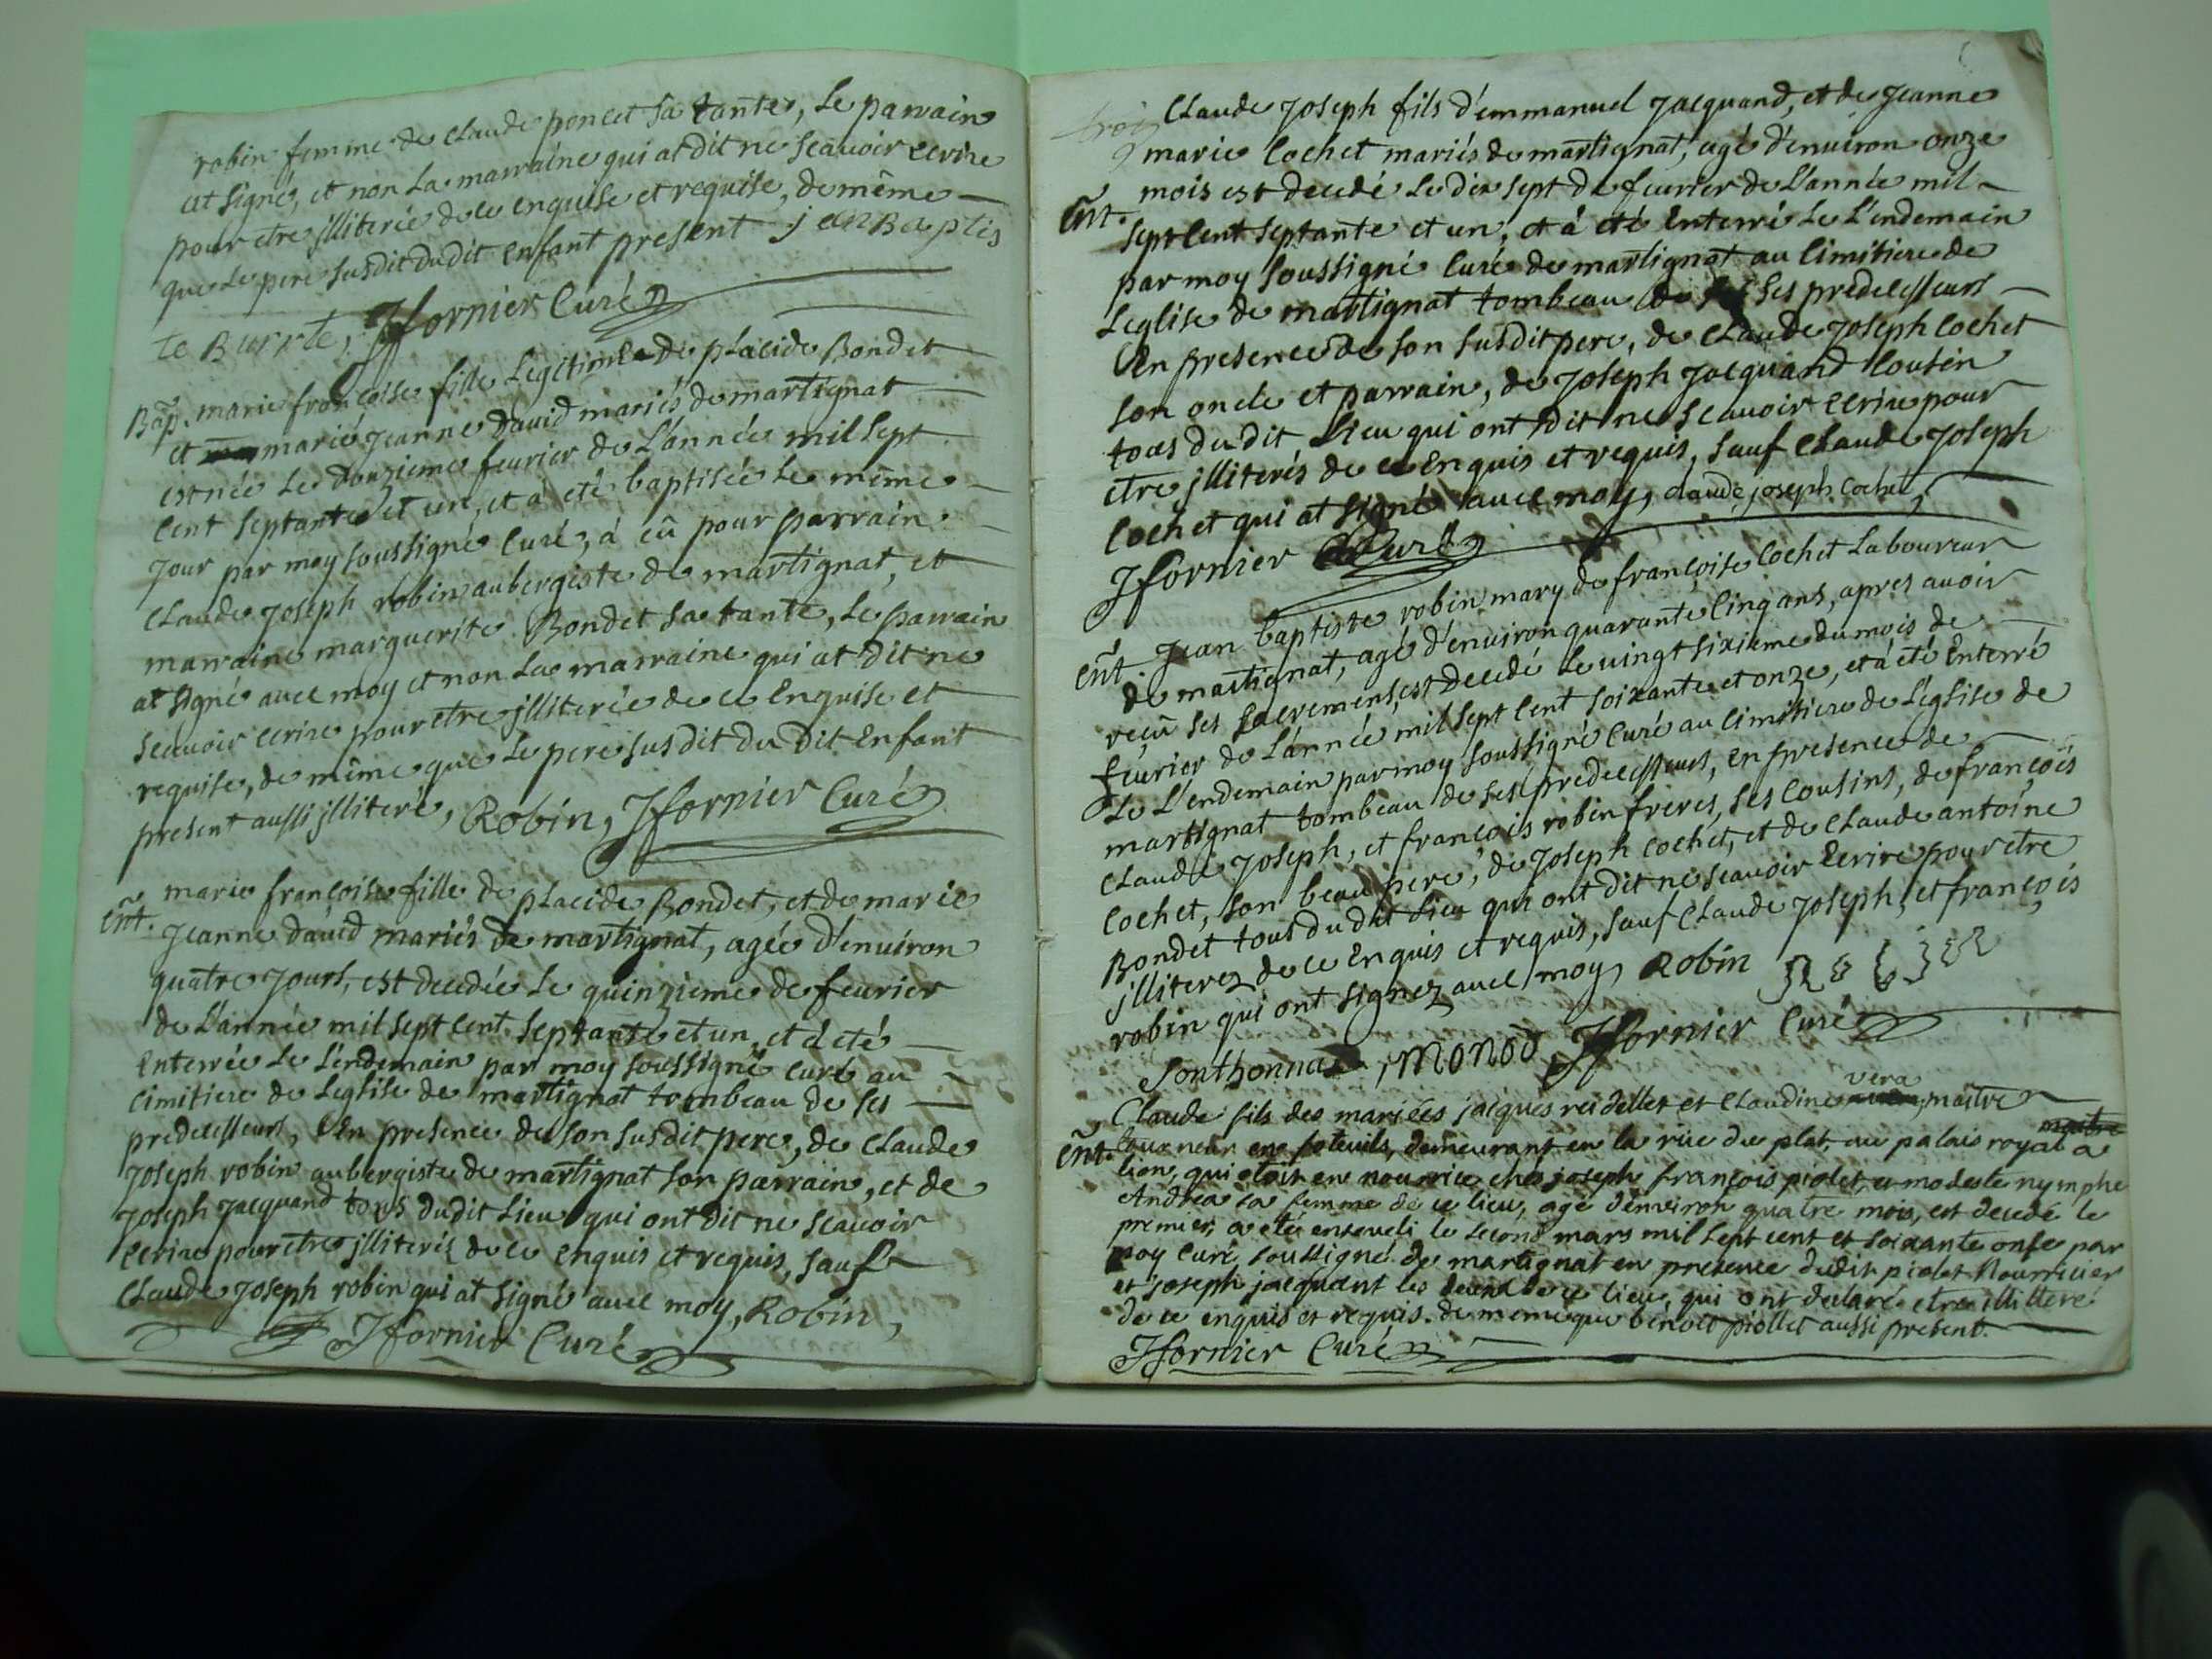 robin femme de claude poncet sa tante, le parrain
at signé, et non la marraine qui at dit ne scavoir ecrire
pour etre jlliterée de ce enquise et requise, de même
que le pere susdit dudit enfant present jean Baptis
te Burrte, Jfornier Curé
Bap. marie francoise fille legitime de placide Bondet
et marie jeanne david mariés de martignat
est née le douzieme feurier de l'année mil sept
cent septante et un, et à eté baptisée le même
jour par moy soussigné Curé, à eû pour parrain
claude joseph robin aubergiste de martignat, et
marraine marguerite Bondet sa tante, le parrain
at signé avec moy et non la marraine qui at dit ne
scavoir ecrire pour etre jlliterée de ce enquise et
requise, de même que le pere susdit du dit enfant
present aussi jlliteré, Robin, Jfornier Curé
marie francoise fille de placide Bondet, et de marie
ent. jeanne david mariés de martignat, agée d'enuiron
quatre jours, est decedée le quinzieme de feurier
de l'année mil sept cent septante et un, et à eté
enterrée le l'endemain par moy soussigné curé au
cimitiere de leglise de martignat tombeau de ses
predecesseurs, en presence de son susdit pere, de claude
joseph robin aubergiste de martignat son parrain, et de
joseph jacquand tous dudit lieu qui ont dit ne scavoir
ecrire pour etre jlliterés de ce enquis et requis, sauf
claude joseph robin qui at signé avec moy, Robin,
Jfornier Curé
trois
claude joseph fils d'emmanuel jacquand, et de jeanne
marie cochet mariés de martignat, agé d'enuiron onze
mois est decedé le dix sept de feurier de l'année mil
ent. sept cent septante et un, et à eté enterré le l'endemain
par moy soussigné curé de martignat au cimitiere de
leglise de martignat tombeau de ses predecesseurs
en presence de son susdit pere, de claude joseph cochet
son oncle et parrain, de joseph jacquand cousin
tous du dit lieu qui ont dit ne scavoir ecrire pour
etre jlliterés de ce enquis et requis, sauf claude joseph
cochet qui at signé avec moy, claude joseph cochet,
Jfornier Curé
ent. jean baptiste robin mary de françoise cochet laboureur
de martignat, agé d'enuiron quarante cinq ans, apres auoir
reçû ses sacremens, est decedé le vingt sixieme du mois de
feurier de l'année mil sept cent soixante et onze, et à eté enterré
le l'endemain par moy soussigné curé au cimitiere de l'église de
martignat tombeau de ses predecesseurs, en presence de
claude joseph, et françois robin freres, ses cousins, de françois
cochet, son beau pere, de joseph cochet, et de claude antoine
Bondet tous du dit lieu qui ont dit ne scauoir ecrire pour etre
jlliterez de ce enquis et requis, sauf claude joseph, et françois
robin qui ont signez avec moy, Robin
Sonthonnax, Monod, Jfornier Curé
vera
Claude fils des mariées jacques reidellet et claudine maitre
tourneur en foteuils, demeurant en la rüe du plat, au palais royal a
ent. lion, qui etoit en nourrice chés joseph françois piolet, et modeste nymphe
Andréa sa femme de ce lieu, agé d'enviròn quatre mois, est decedé le
premier, a eté enseueli le second mars mil sept cent et soixante onse par
moy curé soussigné de martignat en presence dudit piolet Nourricier
et joseph jacquant les deux de ce lieu, qui ont declaré etre illitteré
de ce enquis et requis. de meme que benoit piollet aussi present.
Jfornier Curé